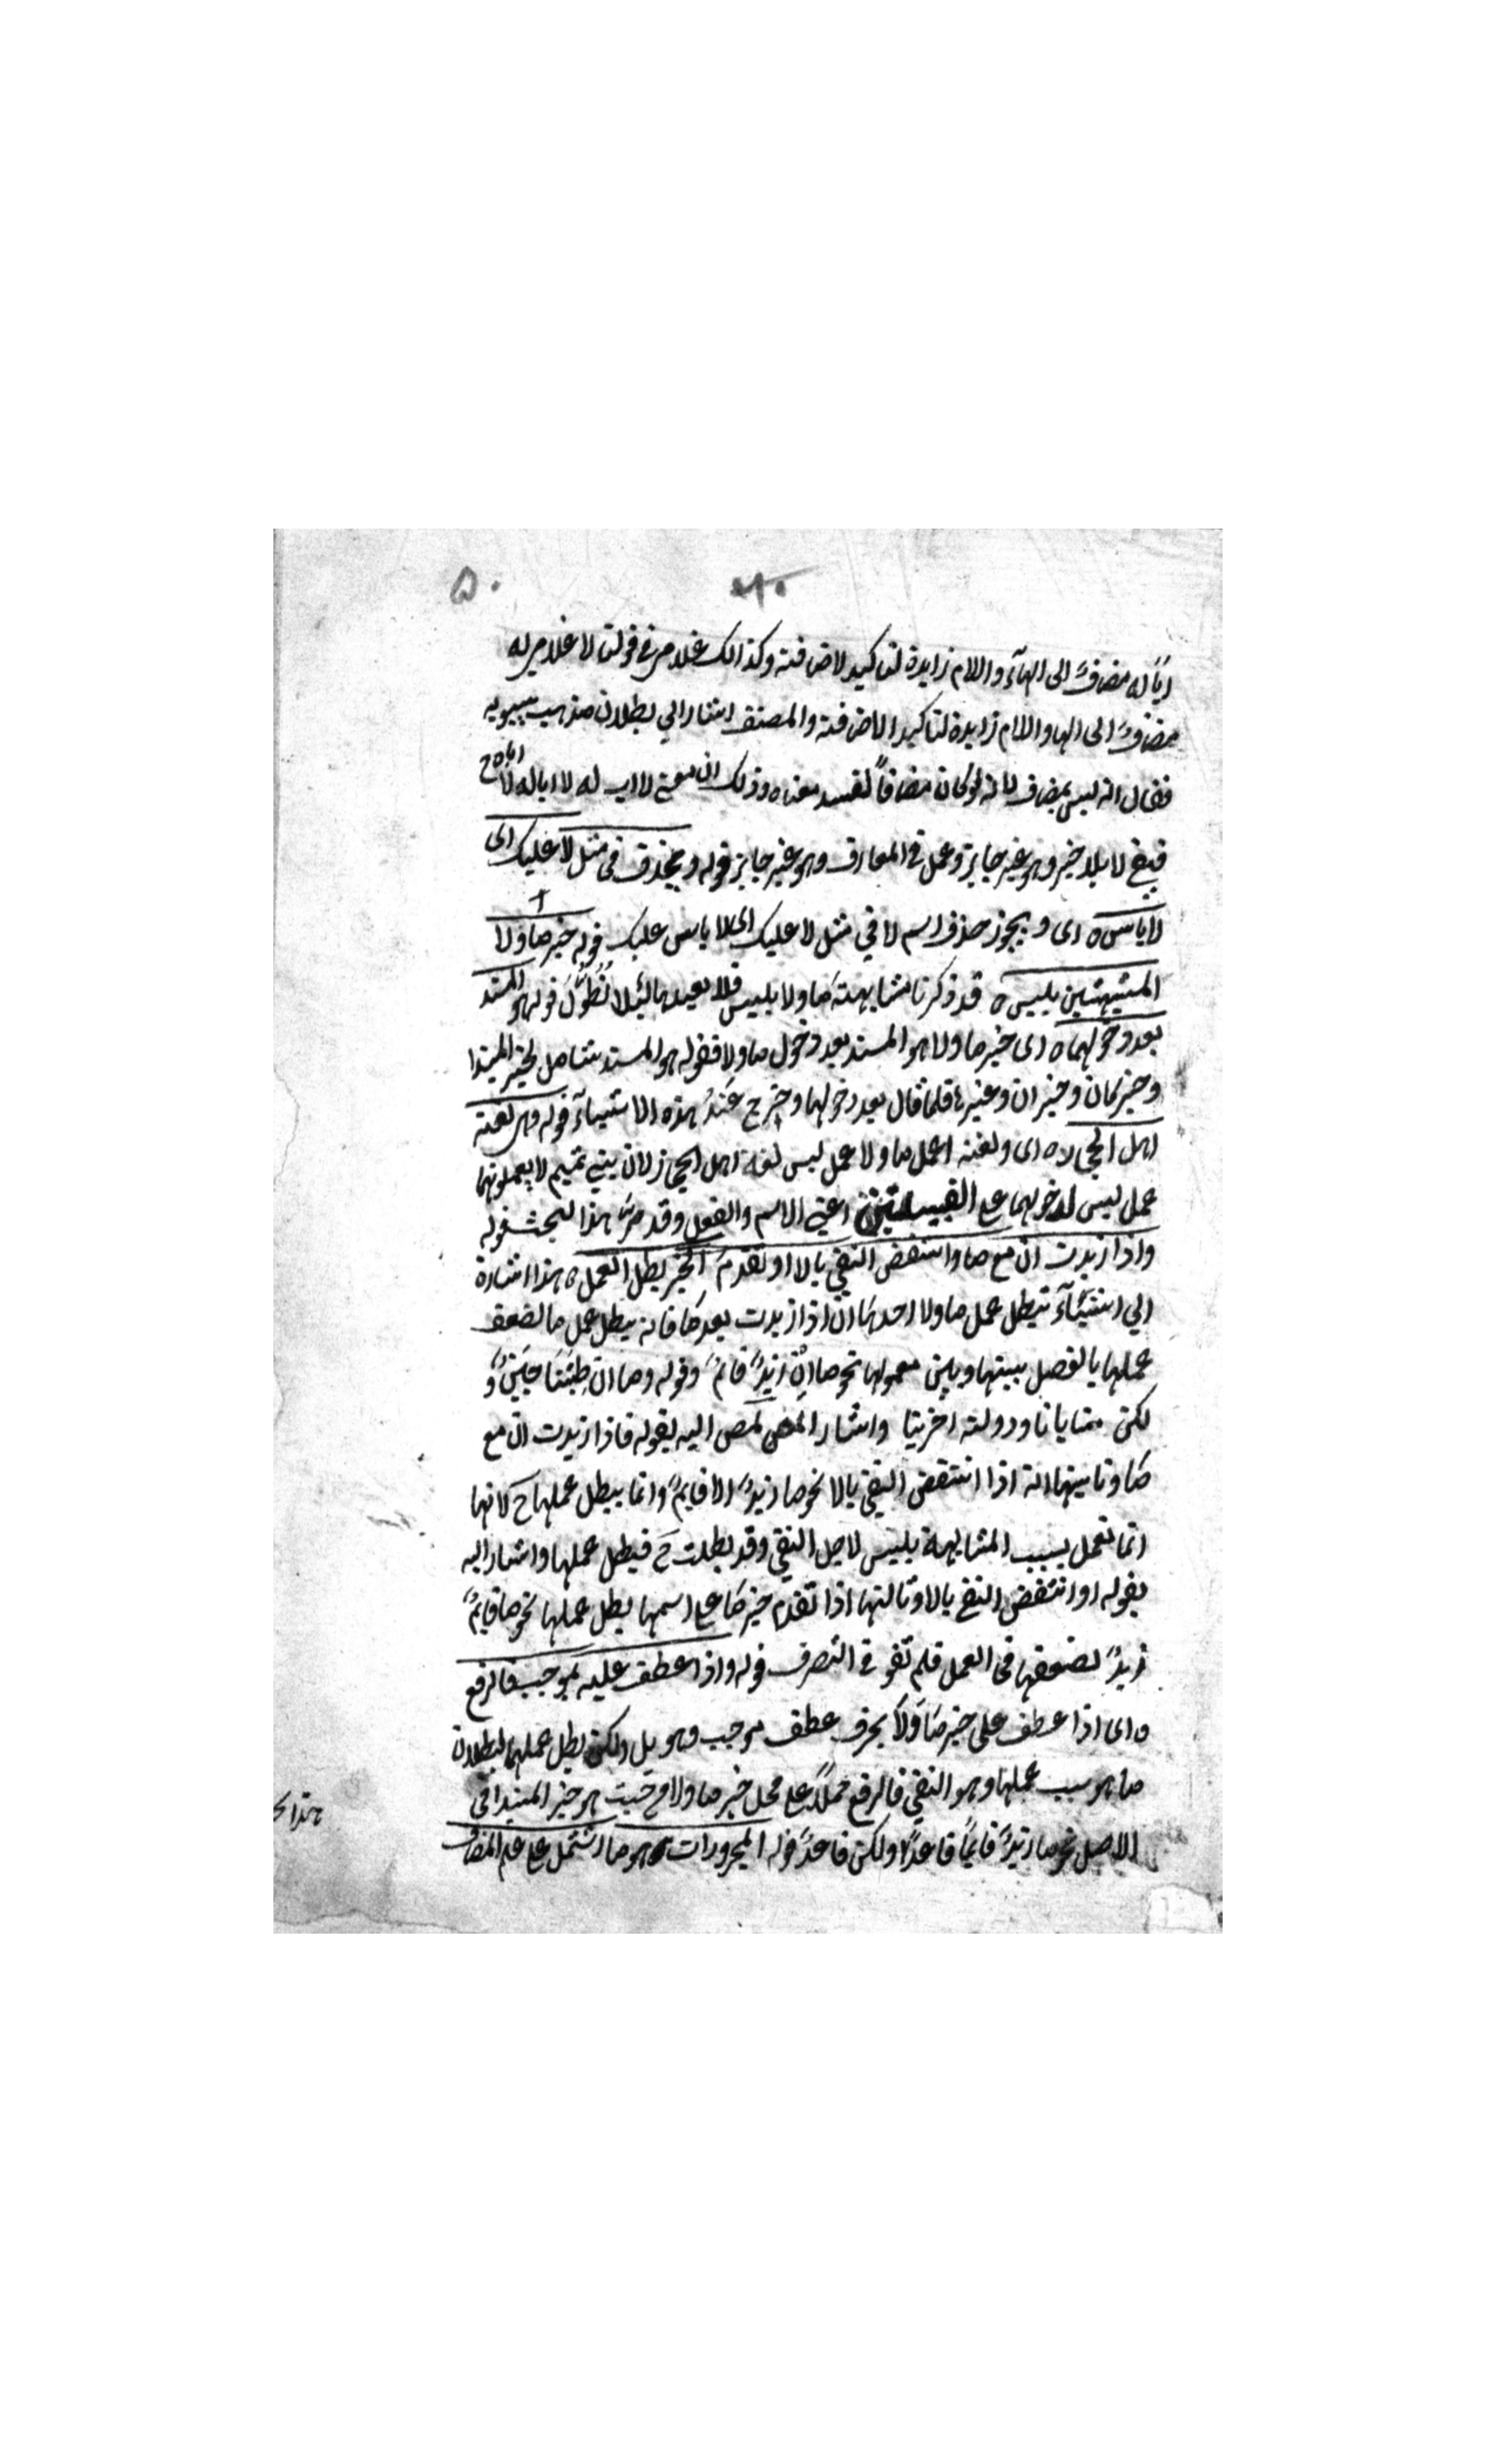 ۵۰
اباً له مضافٌ الى الهآء واللام زايدة لتاكيد لاضافته وكذالك غلام في قولنا لا غلام له
مضافٌ الى الها واللام زايدة لتاكيد الاضافته والمصنف اشار الي بطلان مذهب سيبويه
فقال انه ليس بمضاف لانه لو كان مضافاً لفسد معناه وذلك ان معنى لا اب له لا ابا له لا اباه ح
فبقي لا بلا خبر وهو غير جايز وعمل في المعارف وهو غير جايز قوله ويحذف في مثل لا عليك اى
لا باس ه اى ويجوز حذف اسم لا في مثل لا عليك اى لا باس عليك قوله خبر ما ولا
المشبهتين بليس ه قد ذكرنا مشابهته ما ولا بليس فلا نعيدها لئلا نُطوِّلَ قوله هو المسند
بعد دخولهما ه اى خبر ما ولا هو المسند بعد دخول ما ولا فقوله هو المسند شامل لخبر المبتدا
وخبر كان وخبر ان وغيرها فلما قال بعد دخولهما وخرج عَنْهُ هذه الاشياء قوله وهى لغته
اهل الحجاز ه اى ولغته اعمل ما ولا عمل ليس لغة اهل الحجاز لان بني تميم لا يعملونهما
عمل ليس لدخولهما على القبيلتين اعني الاسم والفعل وقد مرّ هذا البحث قوله
واذا زيدت ان مع ما وانتقض النفي بالا او تقدم الخبر بطل العمل ه هذا اشارة
الي اشيآء تبطل عمل ما ولا احدها ان اذا زيدت بعد ما فانه يبطل عمل ما لضعف
عملها بالفصل بينها وبين معمولها نحو ما اِنْ زَيْدٌ قائمٌ وقوله وما ان طِبّنا جبنٌ و
لكن منايانا ودولته اخرينا واشار المص اليه بقوله فاذا زيدت ان مع
ما وثانيها انه اذا انتقض النفي بالا نحو ما زيدٌ الا قايمٌ وانما يبطل عملها ح لانها
انما تعمل بسبب المشابهة بليس لاجل النفي وقد بطلت ح فيبطل عملها واشار اليه
بقوله او انتقض النفي بالا وثالثها اذا تقدم خبر ما على اسمها بطل عملها نحو ما قايمٌ
زيدٌ لضعفها في العمل فلم تقو في التصرف قوله واذا عطف عليه بموجب فالرفع
ه اى اذا عطف على خبر ما ولا بحرف عطف موجب وهو بل ولكن بطل عملهما لبطلان
ما هو سبب عملها وهو النفي فالرفع حملاً على محل خبر ما ولا ح حيث هو خبر المبتدا في
الاصل نحو ما زيدٌ قايماً قاعدٌ ولكن قاعدٌ قوله المجرورات هو ما اشتمل على علم المضاف